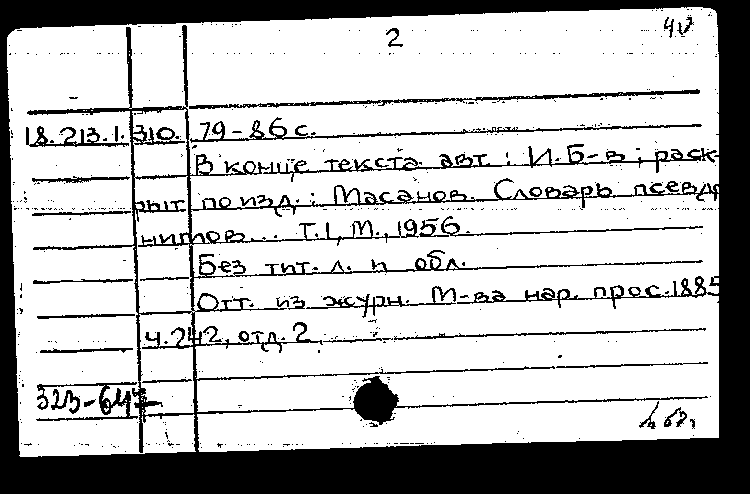 2
18.213.1.310. 79-86 с.
В конце текста авт.: И.Б-в; раск-
рыт по изд.: Масанов. Словарь псевдо
нимов... Т.1, М., 1956.
Без тит. л. и обл.
Отт. из журн. М-ва нар. прос. 1885
ч.242, отд.2